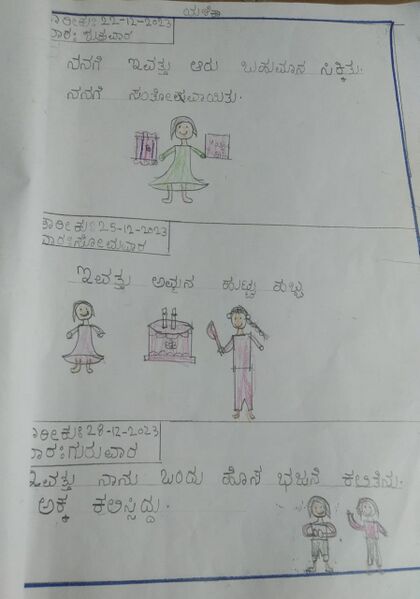 ಯುಕ್ತಾ
ತಾರೀಕು: 22-12-2023
ವಾರ: ಶುಕ್ರವಾರ
ನನಗೆ ಇವತ್ತು ಆರು ಬಹುಮಾನ ಸಿಕ್ಕಿತು.
ನನಗೆ ಸಂತೋಷವಾಯಿತು.
ತಾರೀಕು: 25-12-2023
ವಾರ: ಸೋಮವಾರ
ಇವತ್ತು ಅಮ್ಮನ ಹುಟ್ಟು ಹಬ್ಬ
ತಾರೀಕು: 28-12-2023
ವಾರ: ಗುರುವಾರ
ಇವತ್ತು ನಾನು ಒಂದು ಹೊಸ ಭಜನೆ ಕಲಿತೆನು.
ಅಕ್ಕ ಕಲಿಸಿದ್ದು.